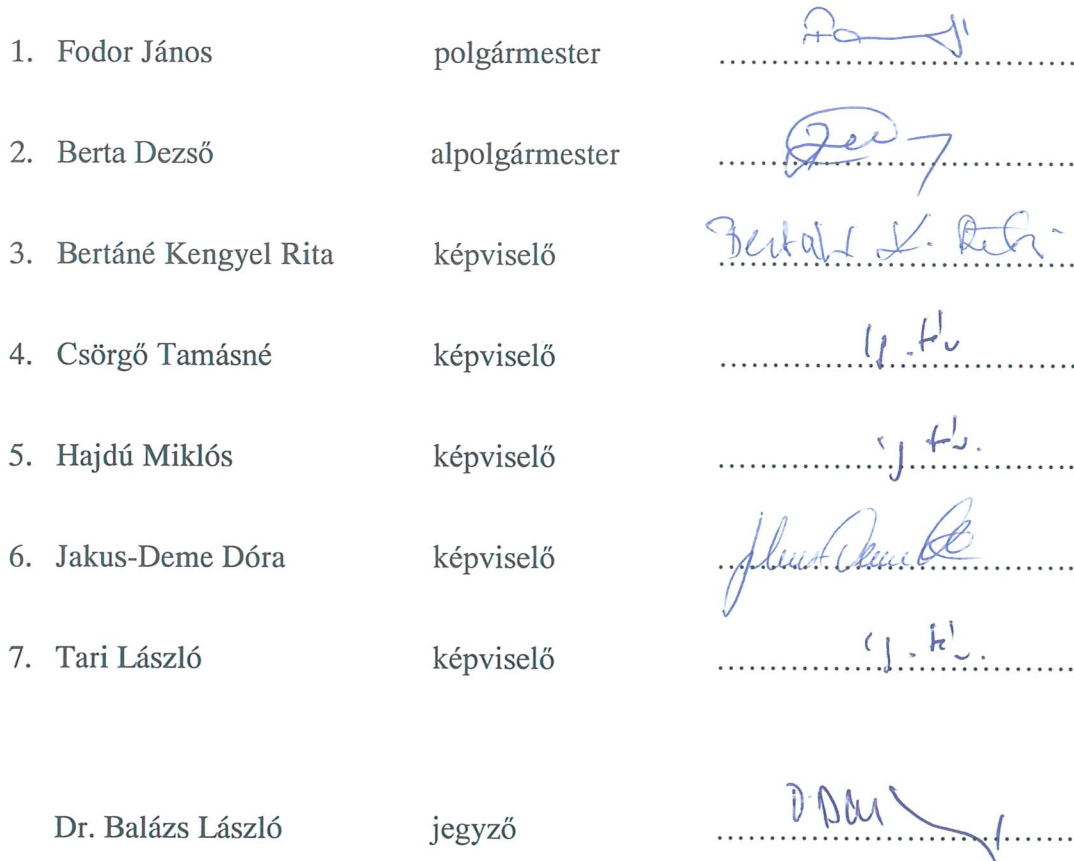 1. Fodor János polgármester
2. Berta Dezső alpolgármester
3. Bertáné Kengyel Rita képviselő Bertáné K. Rita
4. Csörgő Tamásné képviselő ig. táv
5. Hajdú Miklós képviselő ig. táv.
6. Jakus-Deme Dóra képviselő
7. Tari László képviselő ig. táv.
Dr. Balázs László jegyző